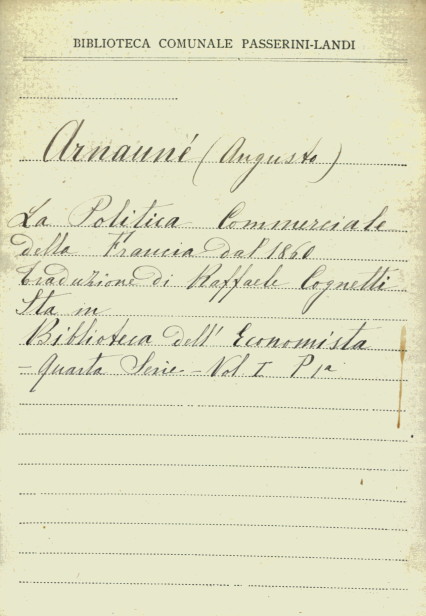 BIBLIOTECA COMUNALE PASSERINI-LANDI
Arnauné (Augusto)
La Politica Commerciale
della Francia dal 1860
traduzione di Raffaele Cognetti
Sta in
Biblioteca dell' Economista
- Quarta Serie - Vol I P 1ª